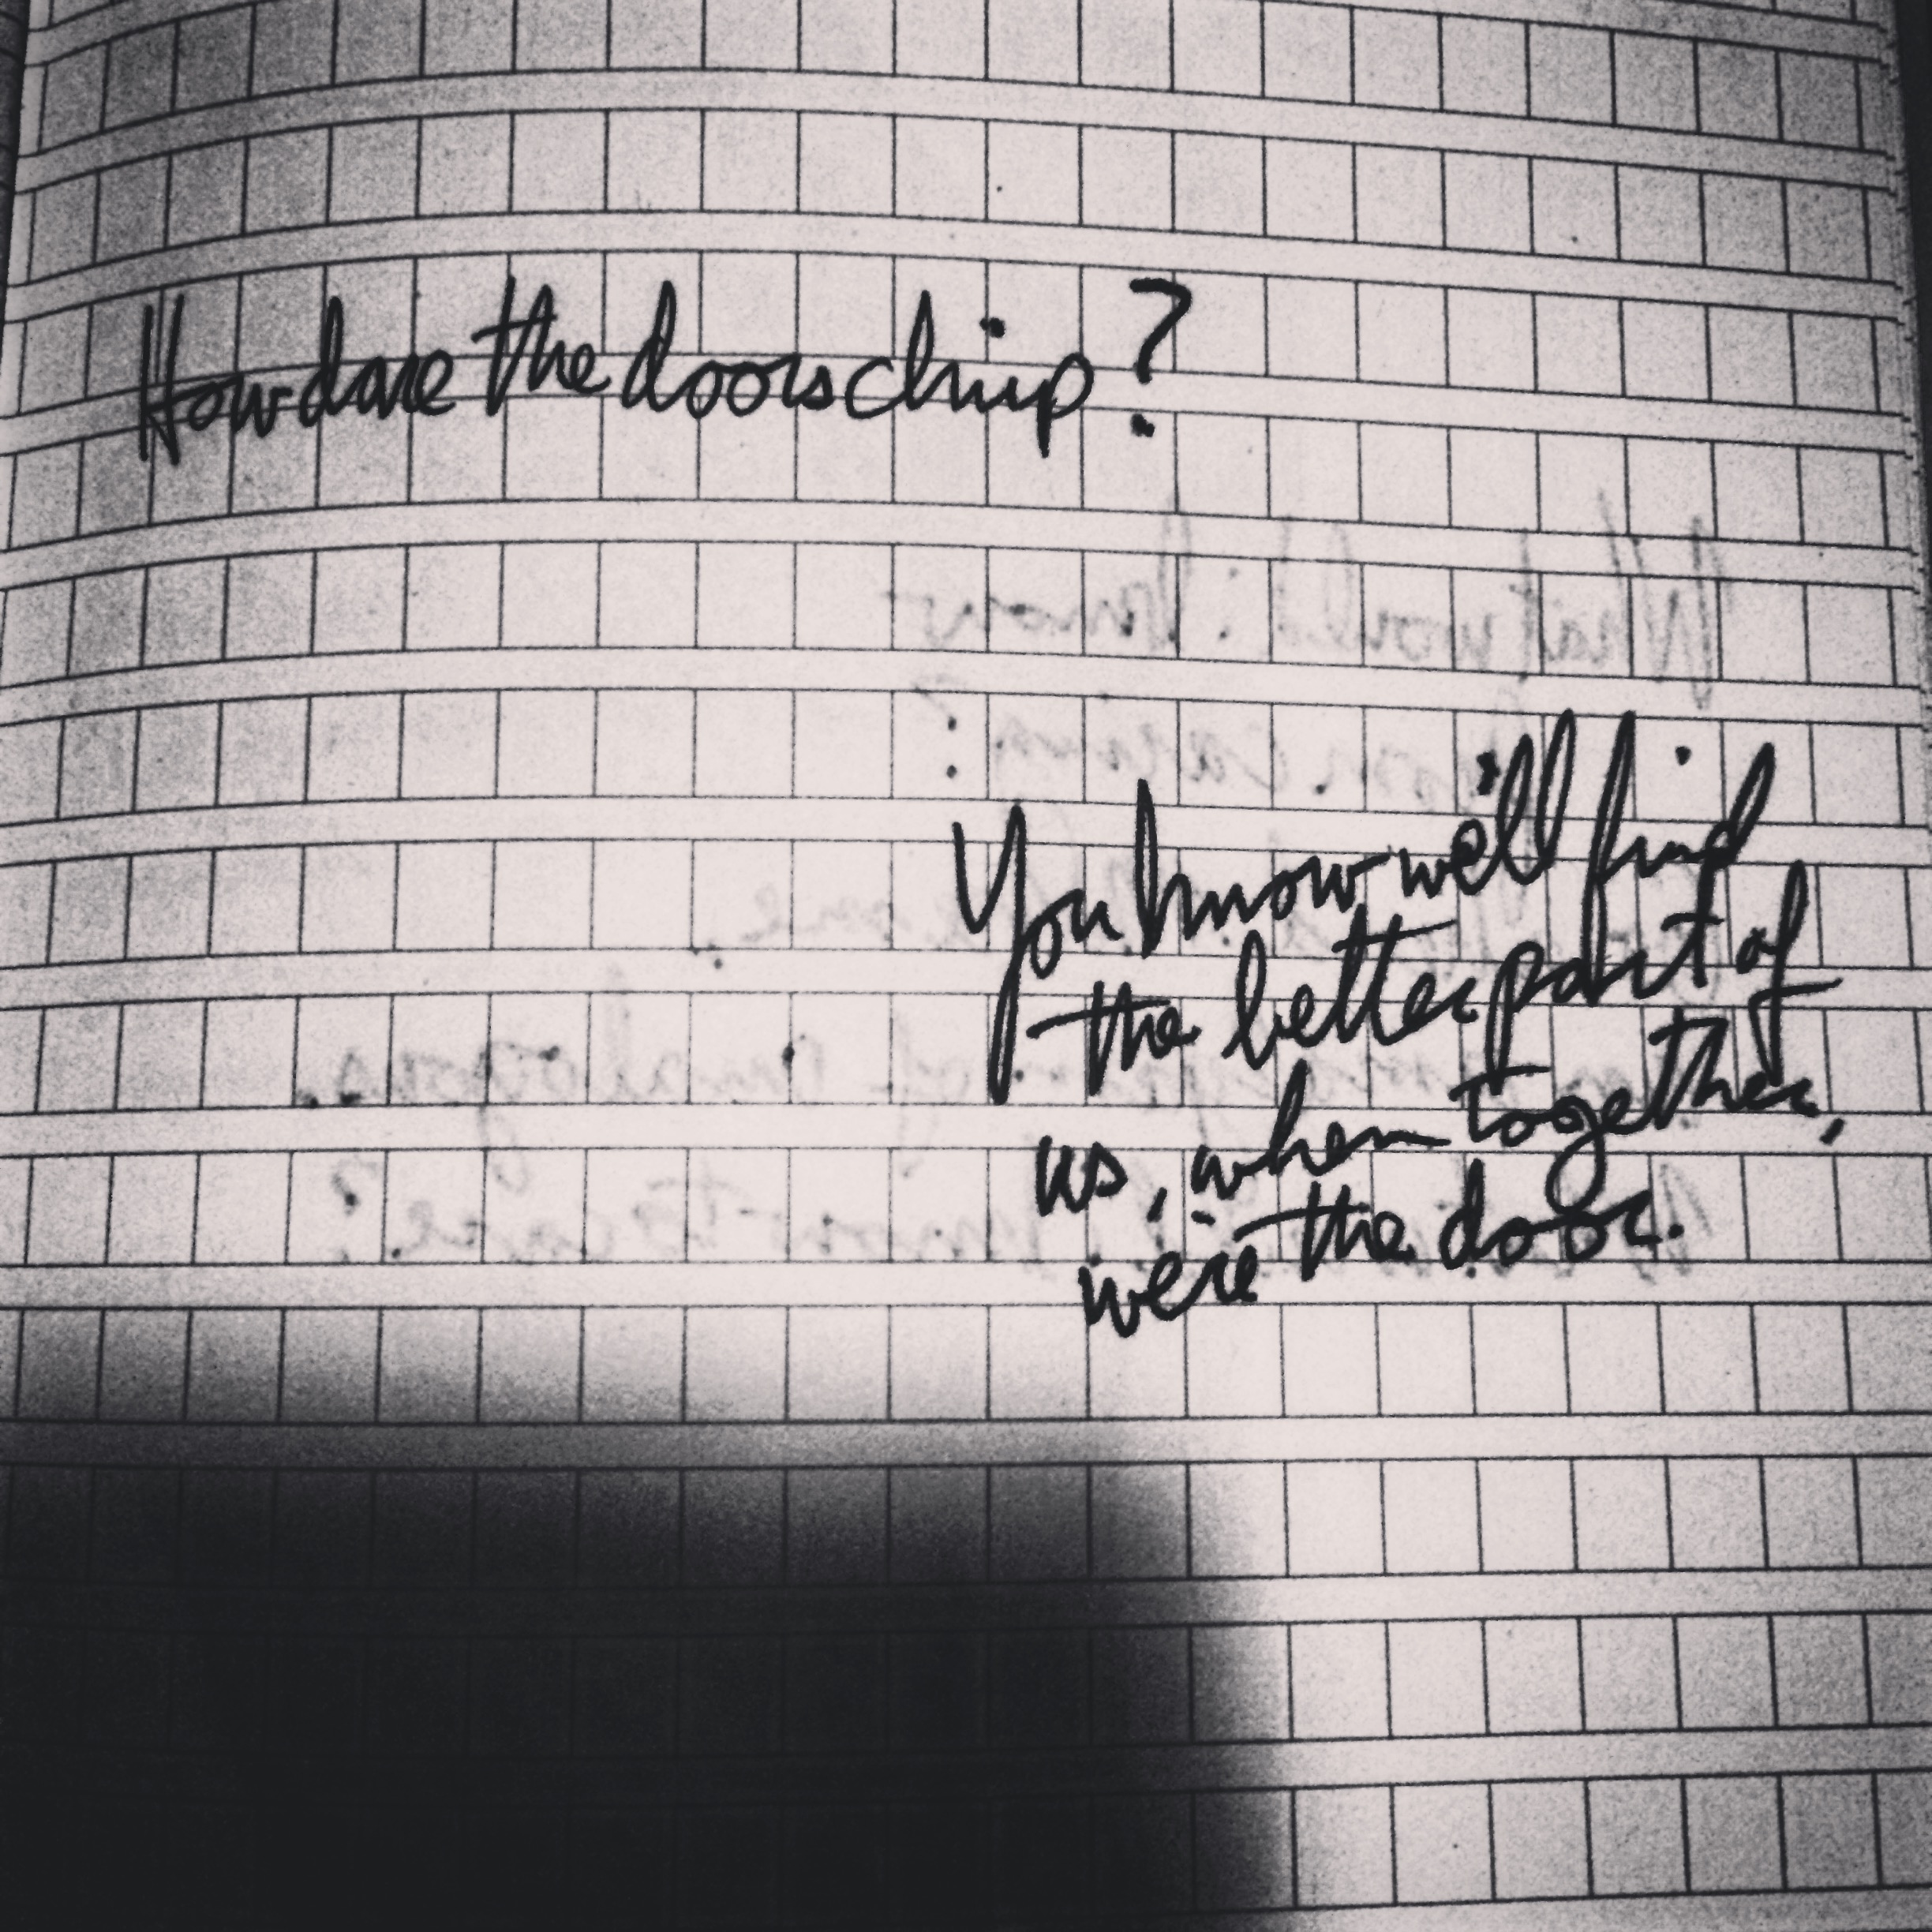 How dare the doors chirp?
You know we'll find
the better part of
us, when together,
we're the door.